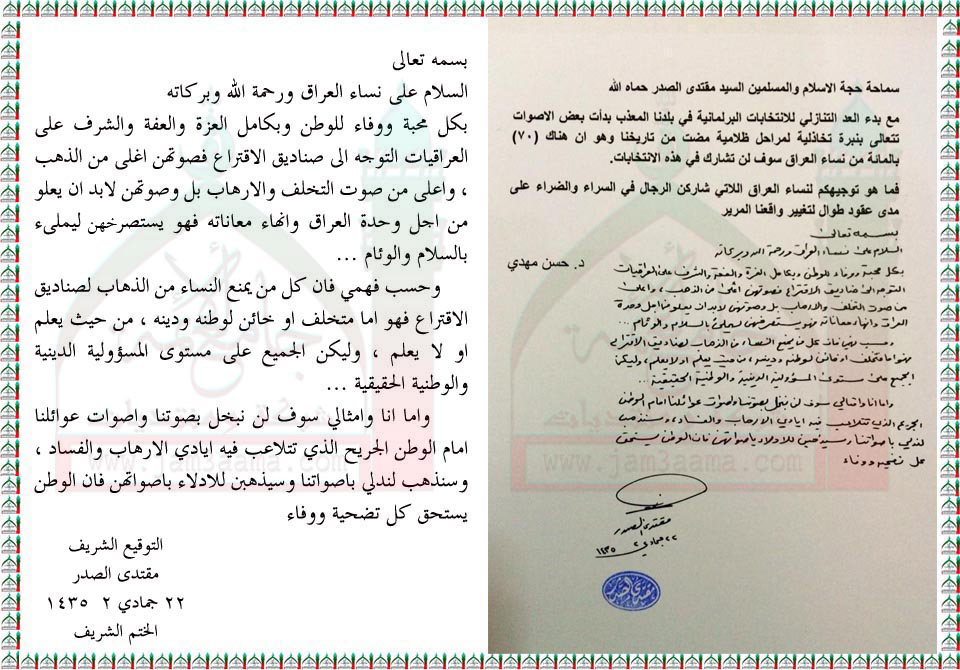 سماحة حجة الاسلام والمسلمين السيد مقتدى الصدر حماه الله
مع بدء العد التنازلي للانتخابات البرلمانية في بلدنا المعذب بدأت بعض الاصوات
تتعالى بنبرة تخاذلية لمراحل ظلامية مضت من تاريخنا وهو ان هناك (٧٠)
بالمائة من نساء العراق سوف لن تشارك في هذه الانتخابات.
فما هو توجيهكم لنساء العراق اللاتي شاركن الرجال في السراء والضراء على
مدى عقود طوال لتغيير واقعنا المرير
د. حسن مهدي
بسمه تعالى
السلام على نساء العراق ورحمة الله وبركاته
بكل محبة ووفاء للوطن وبكامل العزة والعفة والشرف على العراقيات
التوجه الى صناديق الاقتراع فصوتهن اغلى من الذهب ، واعلى
من صوت التخلف والارهاب بل وصوتهن لابد ان يعلو من اجل وحدة
العراق وانهاء معاناته فهو يستصرخهن ليملىء بالسلام والوئام ...
وحسب فهمي فان كل من يمنع النساء من الذهاب لصناديق الاقتراع
فهو اما متخلف او خائن لوطنه ودينه ، من حيث يعلم او لا يعلم ، وليكن
الجميع على مستوى المسؤولية الدينية والوطنية الحقيقية ...
واما انا وامثالي سوف لن نبخل بصوتنا واصوات عوائلنا امام الوطن
الجريح الذي تتلاعب فيه ايادي الارهاب والفساد ، وسنذهب
لندلي باصواتنا وسيذهبن للادلاء باصواتهن فان الوطن يستحق
كل تضحية ووفاء
مقتدى الصدر
٢٢ جمادي ٢ ١٤٣٥
مقتدى الصدر
بسمه تعالى
السلام على نساء العراق ورحمة الله وبركاته
بكل محبة ووفاء للوطن وبكامل العزة والعفة والشرف على
العراقيات التوجه الى صناديق الاقتراع فصوتهن اغلى من الذهب
، واعلى من صوت التخلف والارهاب بل وصوتهن لابد ان يعلو
من اجل وحدة العراق وانهاء معاناته فهو يستصرخهن ليملىء
بالسلام والوئام ...
وحسب فهمي فان كل من يمنع النساء من الذهاب لصناديق
الاقتراع فهو اما متخلف او خائن لوطنه ودينه ، من حيث يعلم
او لا يعلم ، وليكن الجميع على مستوى المسؤولية الدينية
والوطنية الحقيقية ...
واما انا وامثالي سوف لن نبخل بصوتنا واصوات عوائلنا
امام الوطن الجريح الذي تتلاعب فيه ايادي الارهاب والفساد ،
وسنذهب لندلي باصواتنا وسيذهبن للادلاء باصواتهن فان الوطن
يستحق كل تضحية ووفاء
التوقيع الشريف
مقتدى الصدر
٢٢ جمادي ٢ ١٤٣٥
الختم الشريف
www.jam3aama.com
www.jam3aama.com